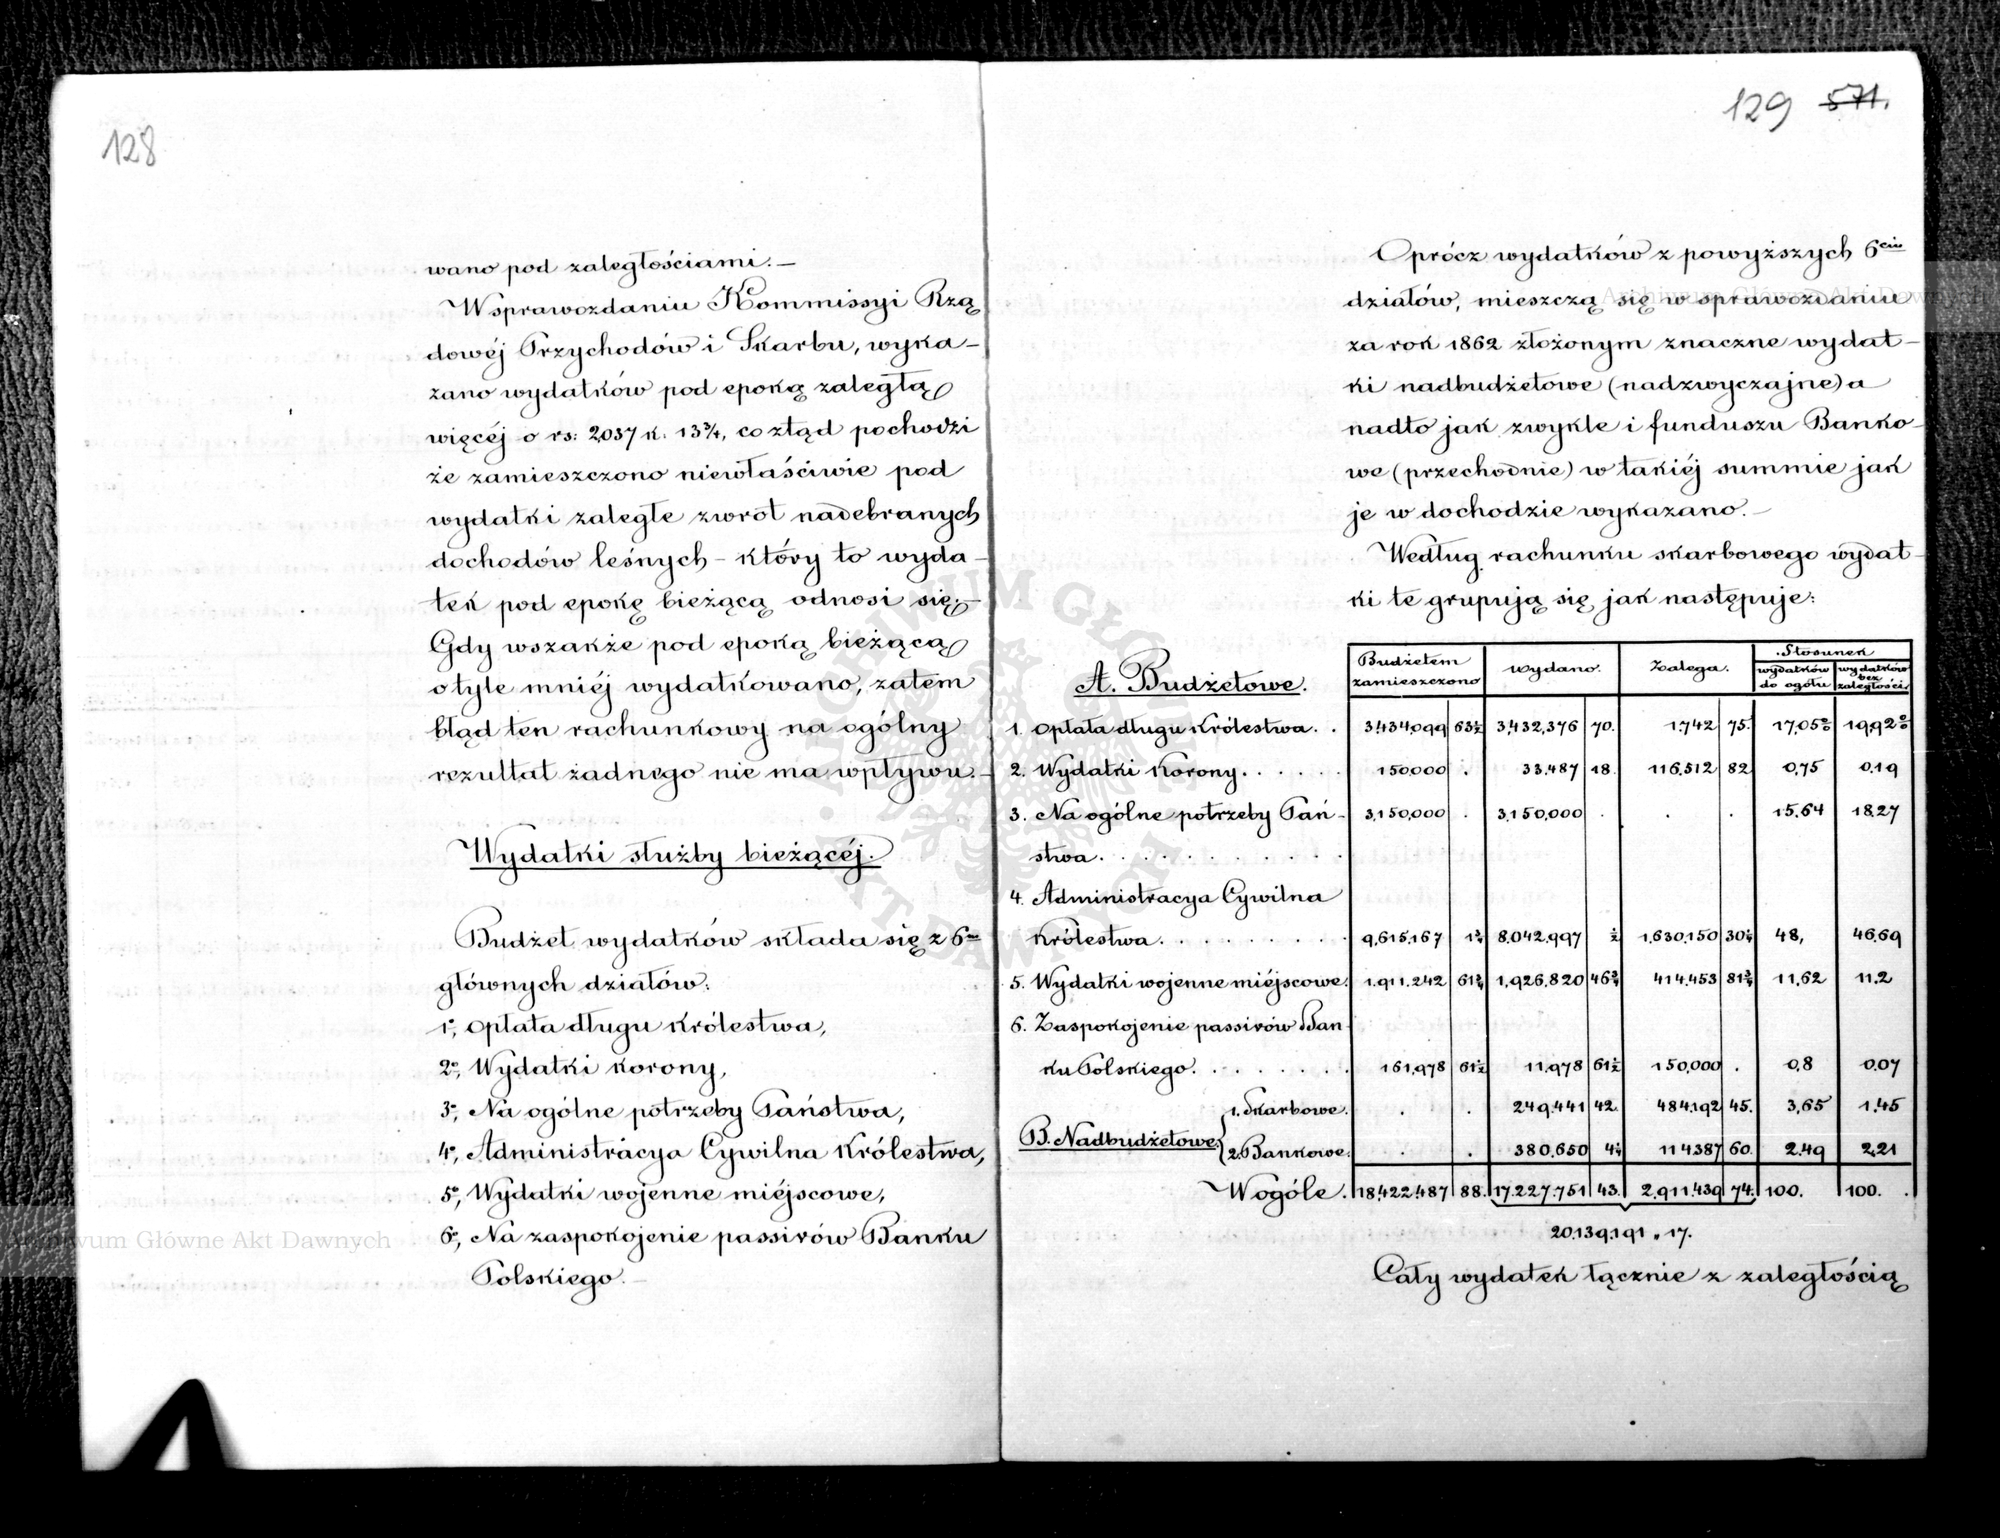 128
wano pod zaległościami.—
W sprawozdaniu Kommissyi Rzą
dowéj Przychodów i Skarbu, wyka-
zano wydatków pod epoką zaległą
więcéj o rs: 2037 k. 13¾, co ztąd pochodzi
że zamieszczono niewłaściwie pod
wydatki zaległe zwrot nadebranych
dochodów leśnych - który to wyda-
tek pod epokę bieżącą odnosi się.-
Gdy wszakże pod epoką bieżącą
o tyle mniéj wydatkowano, zatem
błąd ten rachunkowy na ogólny
rezultat żadnego nie ma wpływu.-
Wydatki służby bieżącéj.
Budżet wydatków składa się z 6ciu
głównych działów:
1º, Opłata długu Królestwa,
2º, Wydatki korony,
3º, Na ogólne potrzeby Państwa,
4º, Administracya Cywilna Królestwa,
5º, Wydatki wojenne miéjscowe,
6º, Na zaspokojenie passivów Banku
Polskiego.—
129 571.
Oprócz wydatków z powyższych 6ciu
działów, mieszczą się w sprawozdaniu
za rok 1862 złożonym znaczne wydat-
ki nadbudżetowe (nadzwyczajne) a
nadto jak zwykle i funduszu Banko-
we (przechodnie) w takiéj summie jak
je w dochodzie wykazano.—
Według rachunku skarbowego wydat-
ki te grupują się jak następuje:
A. Budżetowe. Budżetem zamieszczono wydano. Zalega. Stosunek wydatków do ogółu wydatków bez zaległości
1. Opłata długu Królestwa. . 3,434,099 63½ 3,432,376 70. 1.742 75. 17,05% 19,92%
2. Wydatki Korony. . . . . . 150.000 . 33.487 18. 116,512 82 0,75 0.19
3. Na ogólne potrzeby Pań- 3,150,000 . 3,150,000 . . . 15.64 18.27
stwa. . . . . . . . . .
4. Administracya Cywilna
Królestwa. . . . . . . . . 9,615,167 1¾ 8.042.997 ½ 1,630,150 30¼ 48, 46,69
5. Wydatki wojenne miéjscowe. 1.911.242 61¾ 1,926.820 46¾ 414.453 81¾ 11,62 11.2
6. Zaspokojenie passivów Ban-
ku Polskiego. . . . . . . . 161,978 61½ 11.978 61½ 150,000 . 0,8 0.07
B. Nadbudżetowe. 1. Skarbowe. . . 249.441 42. 484.192 45. 3,65 1.45
2. Bankowe. . . 380,650 4¼ 114387 60. 2.49 2,21
Wogóle. 18,422,487 88. 17.227.751 43. 2.911.439 74. 100. 100.
20.139.191 „ 17.
Cały wydatek łącznie z zaległością
Archiwum Główne Akt Dawnych
Archiwum Główne Akt Dawnych
ARCHIWUM GŁÓWNE AKT DAWNYCH